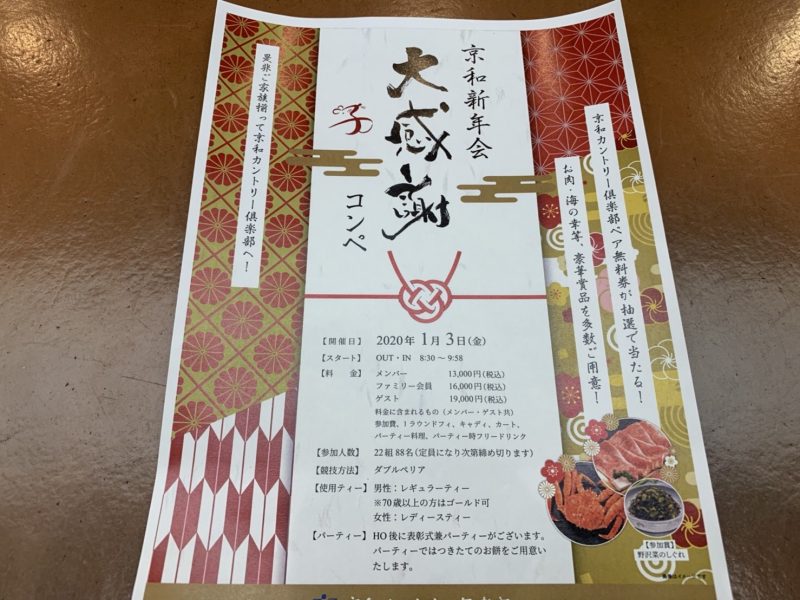 京和新年会
大感謝
コンペ
子
是非ご家族揃って京和カントリー倶楽部へ！
京和カントリー倶楽部ペア無料券が抽選で当たる！
お肉・海の幸等、豪華賞品を多数ご用意！
【開催日】 2020年1月3日(金)
【スタート】 OUT・IN 8:30～9:58
【料 金】 メンバー 13,000円(税込)
ファミリー会員 16,000円(税込)
ゲスト 19,000円(税込)
料金に含まれるもの（メンバー・ゲスト共）
参加費、1ラウンドフィ、キャディ、カート、
パーティー料理、パーティー時フリードリンク
【参加人数】 22組88名(定員になり次第締め切ります)
【競技方法】 ダブルペリア
【使用ティー】 男性：レギュラーティー
※70歳以上の方はゴールド可
女性：レディースティー
【パーティー】 HO後に表彰式兼パーティーがございます。
パーティーではつきたてのお餅をご用意い
たします。
【参加賞】
野沢菜のしぐれ
画像はイメージです